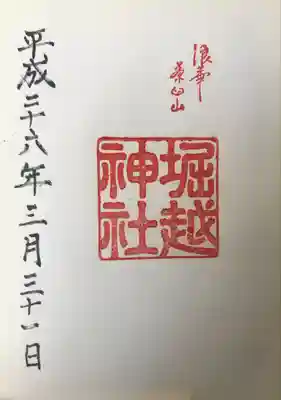 浪華
茶臼山
堀越
神社
平成二十六年三月三十一日